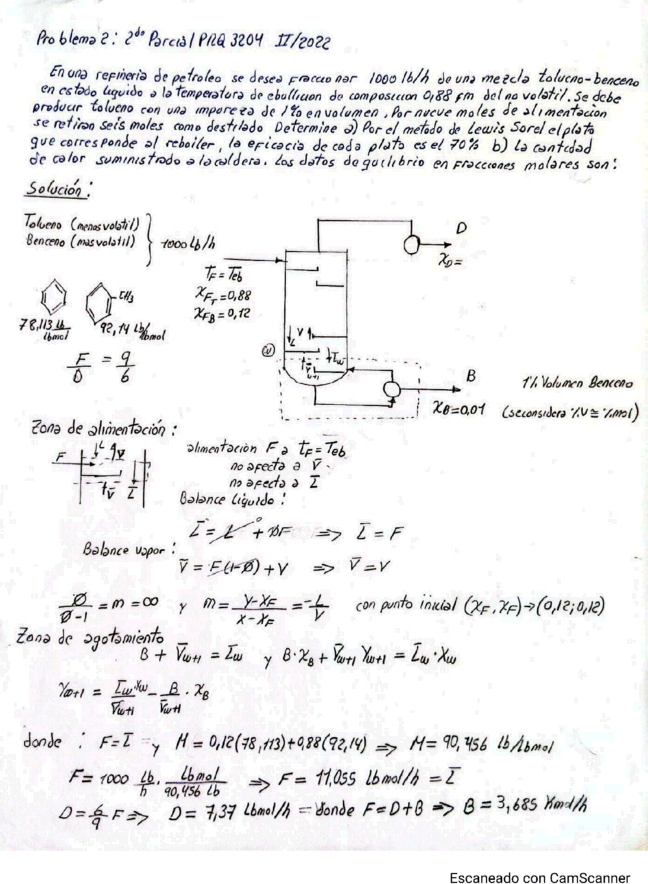 Problema 2: 2do Parcial PRQ 3204 II/2022
En una refineria de petroleo se desea fraccionar 1000 lb/h de una mezcla tolueno-benceno
en estado liquido a la temperatura de ebullicion de composicion 0,88 fm del no volatil. Se debe
producir tolueno con una impureza de 1% en volumen, Por nueve moles de alimentación
se retiran seis moles como destilado Determine a) Por el metodo de Lewis Sorel el plato
que corresponde al reboiler, la eficacia de cada plato es el 70% b) La cantidad
de calor suministrado a la caldera. Los datos de equilibrio en fracciones molares son:
Solución:
Tolueno (menos volatil)
Benceno (mas volatil)
1000 lb/h
D
X_D=
T_F = T_eb
X_F_T = 0,88
X_FB = 0,12
CH3
78,113 lb/lbmol
92,14 lb/lbmol
F/D = 9/6
L V
w
L̄w
V̄w+1
B
X_B=0,01
1% Volumen Benceno
(se considera %V ≅ %mol)
Zona de alimentación:
F L V
V̄ L̄
alimentación F a t_F = T_eb
no afecta a V̄
no afecta a L̄
Balance Liquido:
L̄ = L + ØF ⇒ L̄ = F
Balance vapor:
V̄ = F(1-Ø) + V ⇒ V̄ = V
Ø/(Ø-1) = m = ∞ y m = (Y-X_F)/(X-X_F) = -L/V con punto inicial (X_F, X_F) → (0,12; 0,12)
Zona de agotamiento
B + V̄w+1 = L̄w y B·X_B + V̄w+1 Yw+1 = L̄w·Xw
Yw+1 = L̄w Xw/V̄w+1 - B/V̄w+1 · X_B
donde : F = L̄ y M = 0,12(78,113)+0,88(92,14) ⇒ M = 90,456 lb/lbmol
F = 1000 lb/h · lbmol/90,456 lb ⇒ F = 11,055 lbmol/h = L̄
D = 6/9 F ⇒ D = 7,37 Lbmol/h = donde F = D+B ⇒ B = 3,685 /h
Escaneado con CamScanner